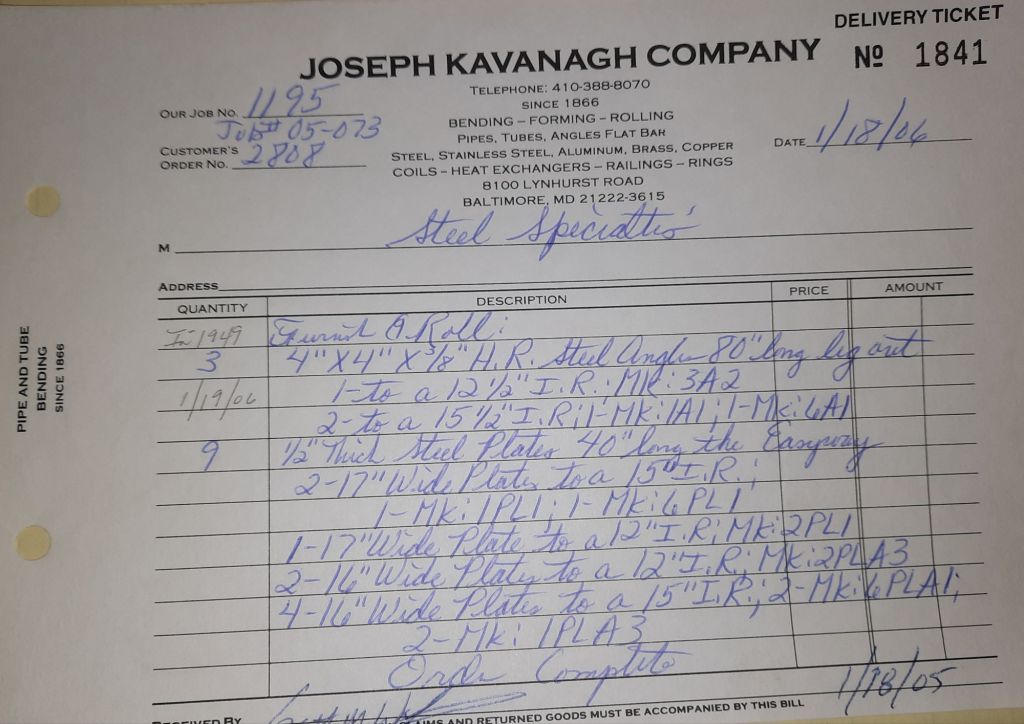 DELIVERY TICKET
JOSEPH KAVANAGH COMPANY
Nº 1841
TELEPHONE: 410-388-8070
SINCE 1866
BENDING – FORMING – ROLLING
PIPES, TUBES, ANGLES FLAT BAR
STEEL, STAINLESS STEEL, ALUMINUM, BRASS, COPPER
COILS – HEAT EXCHANGERS – RAILINGS – RINGS
8100 LYNHURST ROAD
BALTIMORE, MD 21222-3615
OUR JOB NO. 1195
Job# 05-073
CUSTOMER'S
ORDER NO. 2808
DATE 1/18/06
M Steel Specialties
ADDRESS
QUANTITY DESCRIPTION PRICE AMOUNT
In 1949 Furnish & Roll:
3 4" X 4" X 3/8" H.R. Steel Angles 80" long leg out
1/19/06 1-to a 12 1/2" I.R.; MK: 3A2
2-to a 15 1/2" I.R; 1-MK: 1A1; 1-MK: 6A1
9 1/2" Thick Steel Plates 40" long the Easyway
2-17" Wide Plates to a 15" I.R.;
1-MK: 1PL1; 1-MK: 6PL1
1-17" Wide Plate to a 12" I.R; MK: 2PL1
2-16" Wide Plates to a 12" I.R; MK: 2PLA3
4-16" Wide Plates to a 15" I.R.; 2-MK: 6PLA1;
2-MK: 1PLA3
Order Complete
1/18/05
RECEIVED BY
AIMS AND RETURNED GOODS MUST BE ACCOMPANIED BY THIS BILL
PIPE AND TUBE
BENDING
SINCE 1866